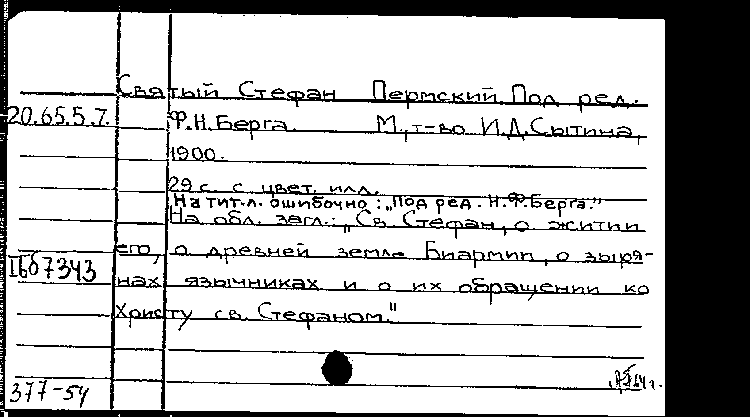 Святый Стефан Пермский. Под ред.
20.65.5.7. Ф.Н.Берга. М., т-во И.Д.Сытина,
1900.
29 с. с цвет. илл.
На тит.л. ошибочно: „Под ред. Н.Ф.Берга."
На обл. загл.: „Св. Стефан, о житии
его, о древней земле Биармии, о зыря-
IБ67343
нах язычниках и о их обращении ко
Христу св. Стефаном."
377-54